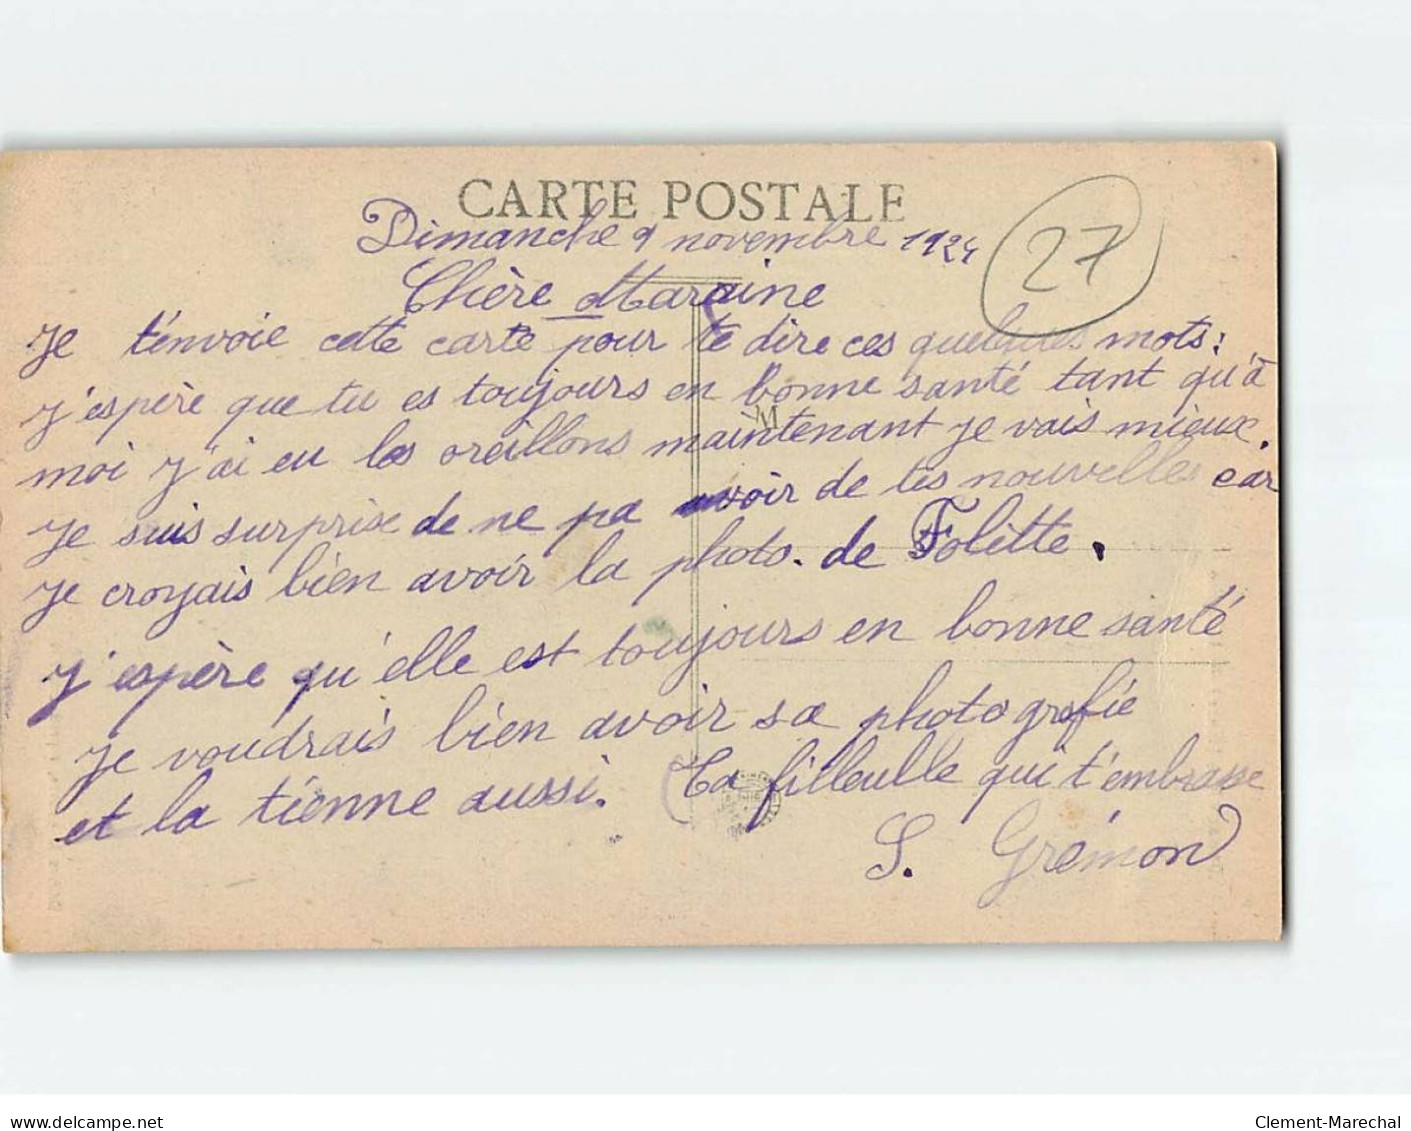 CARTE POSTALE
Dimanche 9 novembre 1924
27
Chère Maraine
Je t'envoie cette carte pour te dire ces quelques mots:
j'espère que tu es toujours en bonne santé tant qu'à
moi j'ai eu les oreillons maintenant je vais mieux.
Je suis surprise de ne pa avoir de tes nouvelles car
je croyais bien avoir la photo. de Folette.
J'espère qu'elle est toujours en bonne santé
je voudrais bien avoir sa photografie
et la tienne aussi. Ta filleulle qui t'embrasse
S. Grémon
delcampe.net
Clement-Marechal